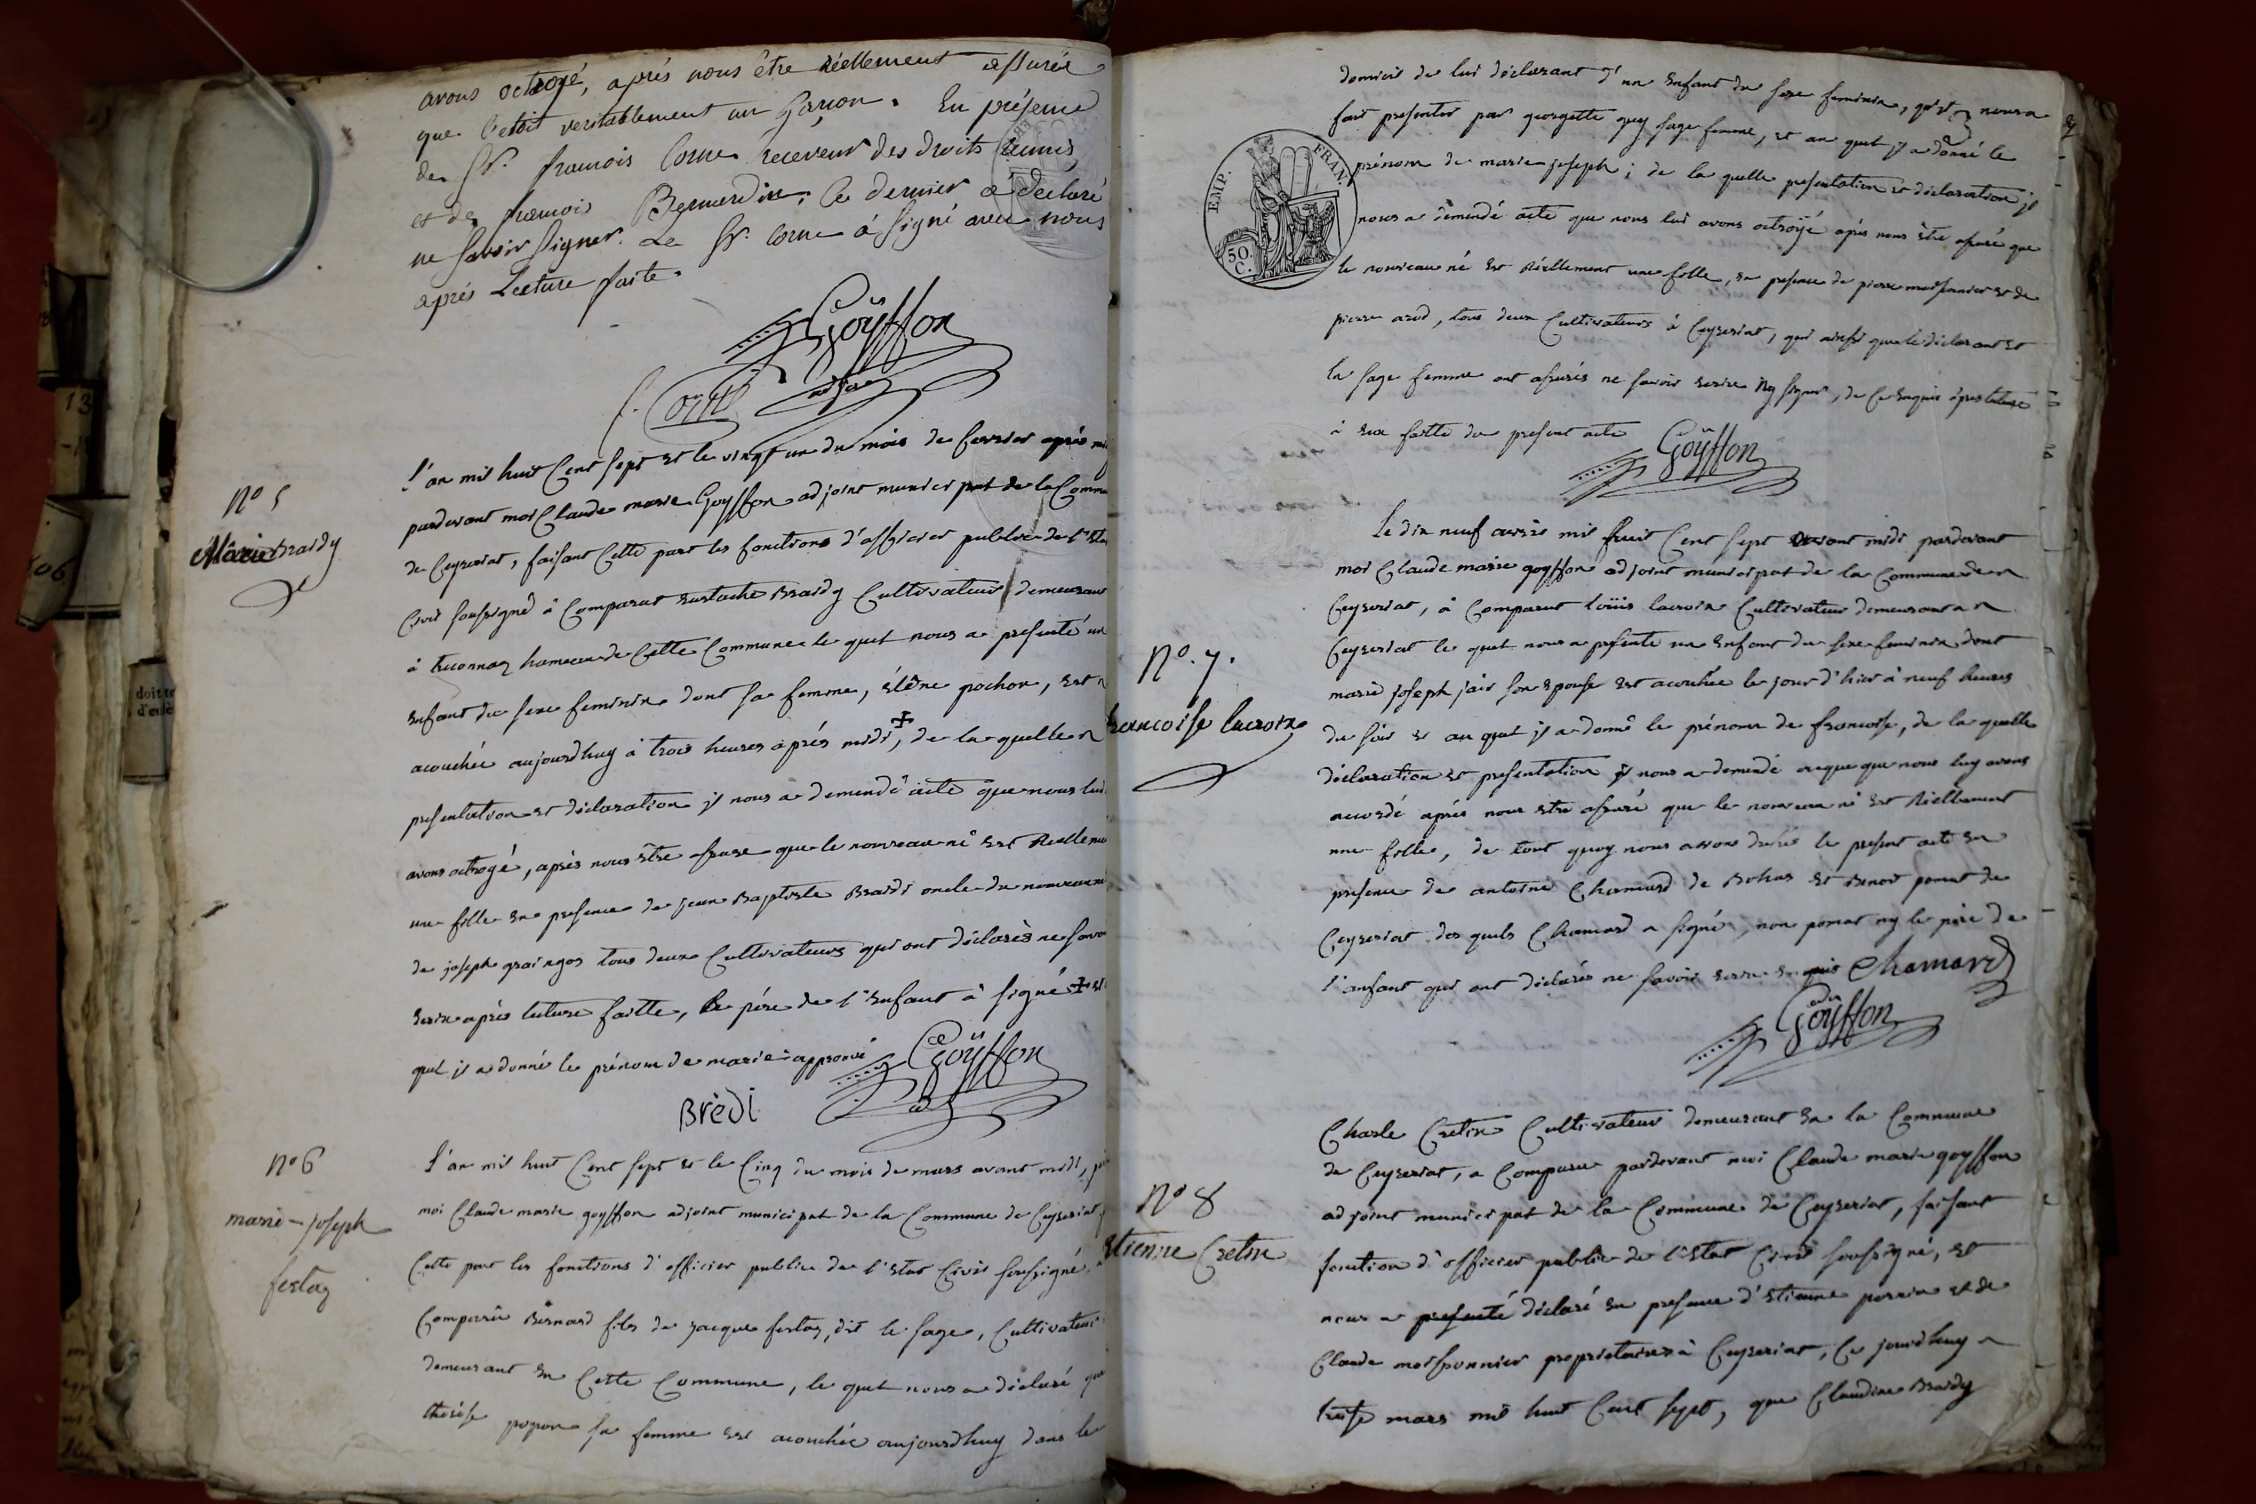 avons octroyé, après nous être réellement assurée
que c'etoit veritablement un Garçon. En présence
de Sr. francois Corne receveur des droits reunis,
et de francois Bernardin. Ce dernier a declaré
ne savoir signer. Le Sr. Corne à signé avec nous
après Lecture faite.
Goÿffon
f. Corne
adj.
N° 5
Marie Braidy
l'an mil huit Cent sept et le vingt un du mois de fevrier après mi
pardevant moi Claude marie Goyffon adjoint municipal de la Commu
de Ceyseriat, faisant Cette part les fonctions d'officier public de l'Etat
Civil soussigné à Comparut Eustache Braidy Cultivateur demeurant
à hameau de Cette Commune le quel nous a presenté un
enfant du sexe feminin dont sa femme, elêne pochon, est
acouchée aujourdhuy à trois heures après midi, de la quelle
presentation et déclaration jl nous a demendé acte que nous lui
avons octroyé, après nous être assuré que le nouveau né est Reellemen
une fille en presence de jean Baptiste Braidi oncle du nouveau né
de joseph graingos tous deux Cultivateurs qui ont déclarès ne savo
ecrire après lecture faitte, le père de l'enfant à signé et
quel jl a donné le prénom de marie approuvé
Goÿffon
Brèdi
adj
N° 6
marie-joseph
festaz
l'an mil huit Cent sept et le Cinq du mois de mars avant midi, par
moi Claude marie goyffon adjoint municipal de la Commune de Ceyseriat
Cette part les fonctions d'officier public de l'etat Civil soussigné
Comparû Bernard fils de jacque festaz, dit le sage, Cultivateur
demeurant en Cette Commune, le quel nous a déclaré que
thérèse poyon sa femme est acouchée aujourdhuy dans le
domicil de lui déclarant d'un enfant du sexe feminin, qu'il nous a
fait presenter par georgette guy sage femme, et au quel jl a donné le
prénom de marie joseph; de la quelle presentation et déclaration jl
nous a demendé acte que nous lui avons octroÿé après nous être assuré que
le nouveau né est réellement une fille, en presence de pierre moissonnier et de
pierre arod, tous deux Cultivateurs à Ceyseriat, qui ainsi que le déclarant et
la sage femme ont assurés ne savoir ecrire ny signer, de Ce enquis après lecture
à eux faitte du present acte
Goÿffon
EMP. FRAN.
50. C.
N°. 7.
francoise lacroix
Le dix neuf avril mil huit Cent sept avant midi pardevant
moi Claude marie goyffon adjoint municipal de la Commune de
Ceyseriat, à Comparut loüis lacroix Cultivateur demeurant a
Ceyseriat le quel nous a présenté un enfant du sexe feminin dont
marie joseph jair son epouse est acouchée le jour d'hier à neuf heures
du soir et au quel jl a donné le prénom de francoise, de la quelle
déclaration et presentation jl nous a demendé que nous luy avons
accordé après nous etre assuré que le nouveau né est Réellement
une fille, de tout quoy nous avons dressé le present acte en
presence de antoine Chamard de Bohas et Benoit ponat de
Ceyseriat des quels Chamard a signé, non ponat ny le père de
l'anfant qui ont déclarés ne savoir ecrire enquis Chamard
Goÿffon
adj
N° 8
Etienne Cretin
Charle Cretin Cultivateur demeurant en la Commune
de Ceyseriat, a Comparu pardevant moi Claude marie goyffon
adjoint municipal de la Commune de Ceyseriat, faisant
fonction d'officier public de l'etat Civil soussigné, et
nous a presenté déclaré en presence d'etienne perrin et de
Claude moissonnier propriétaires à Ceyseriat, Ce jourdhuy
treise mars mil huit Cent sept, que Claudine Braidy